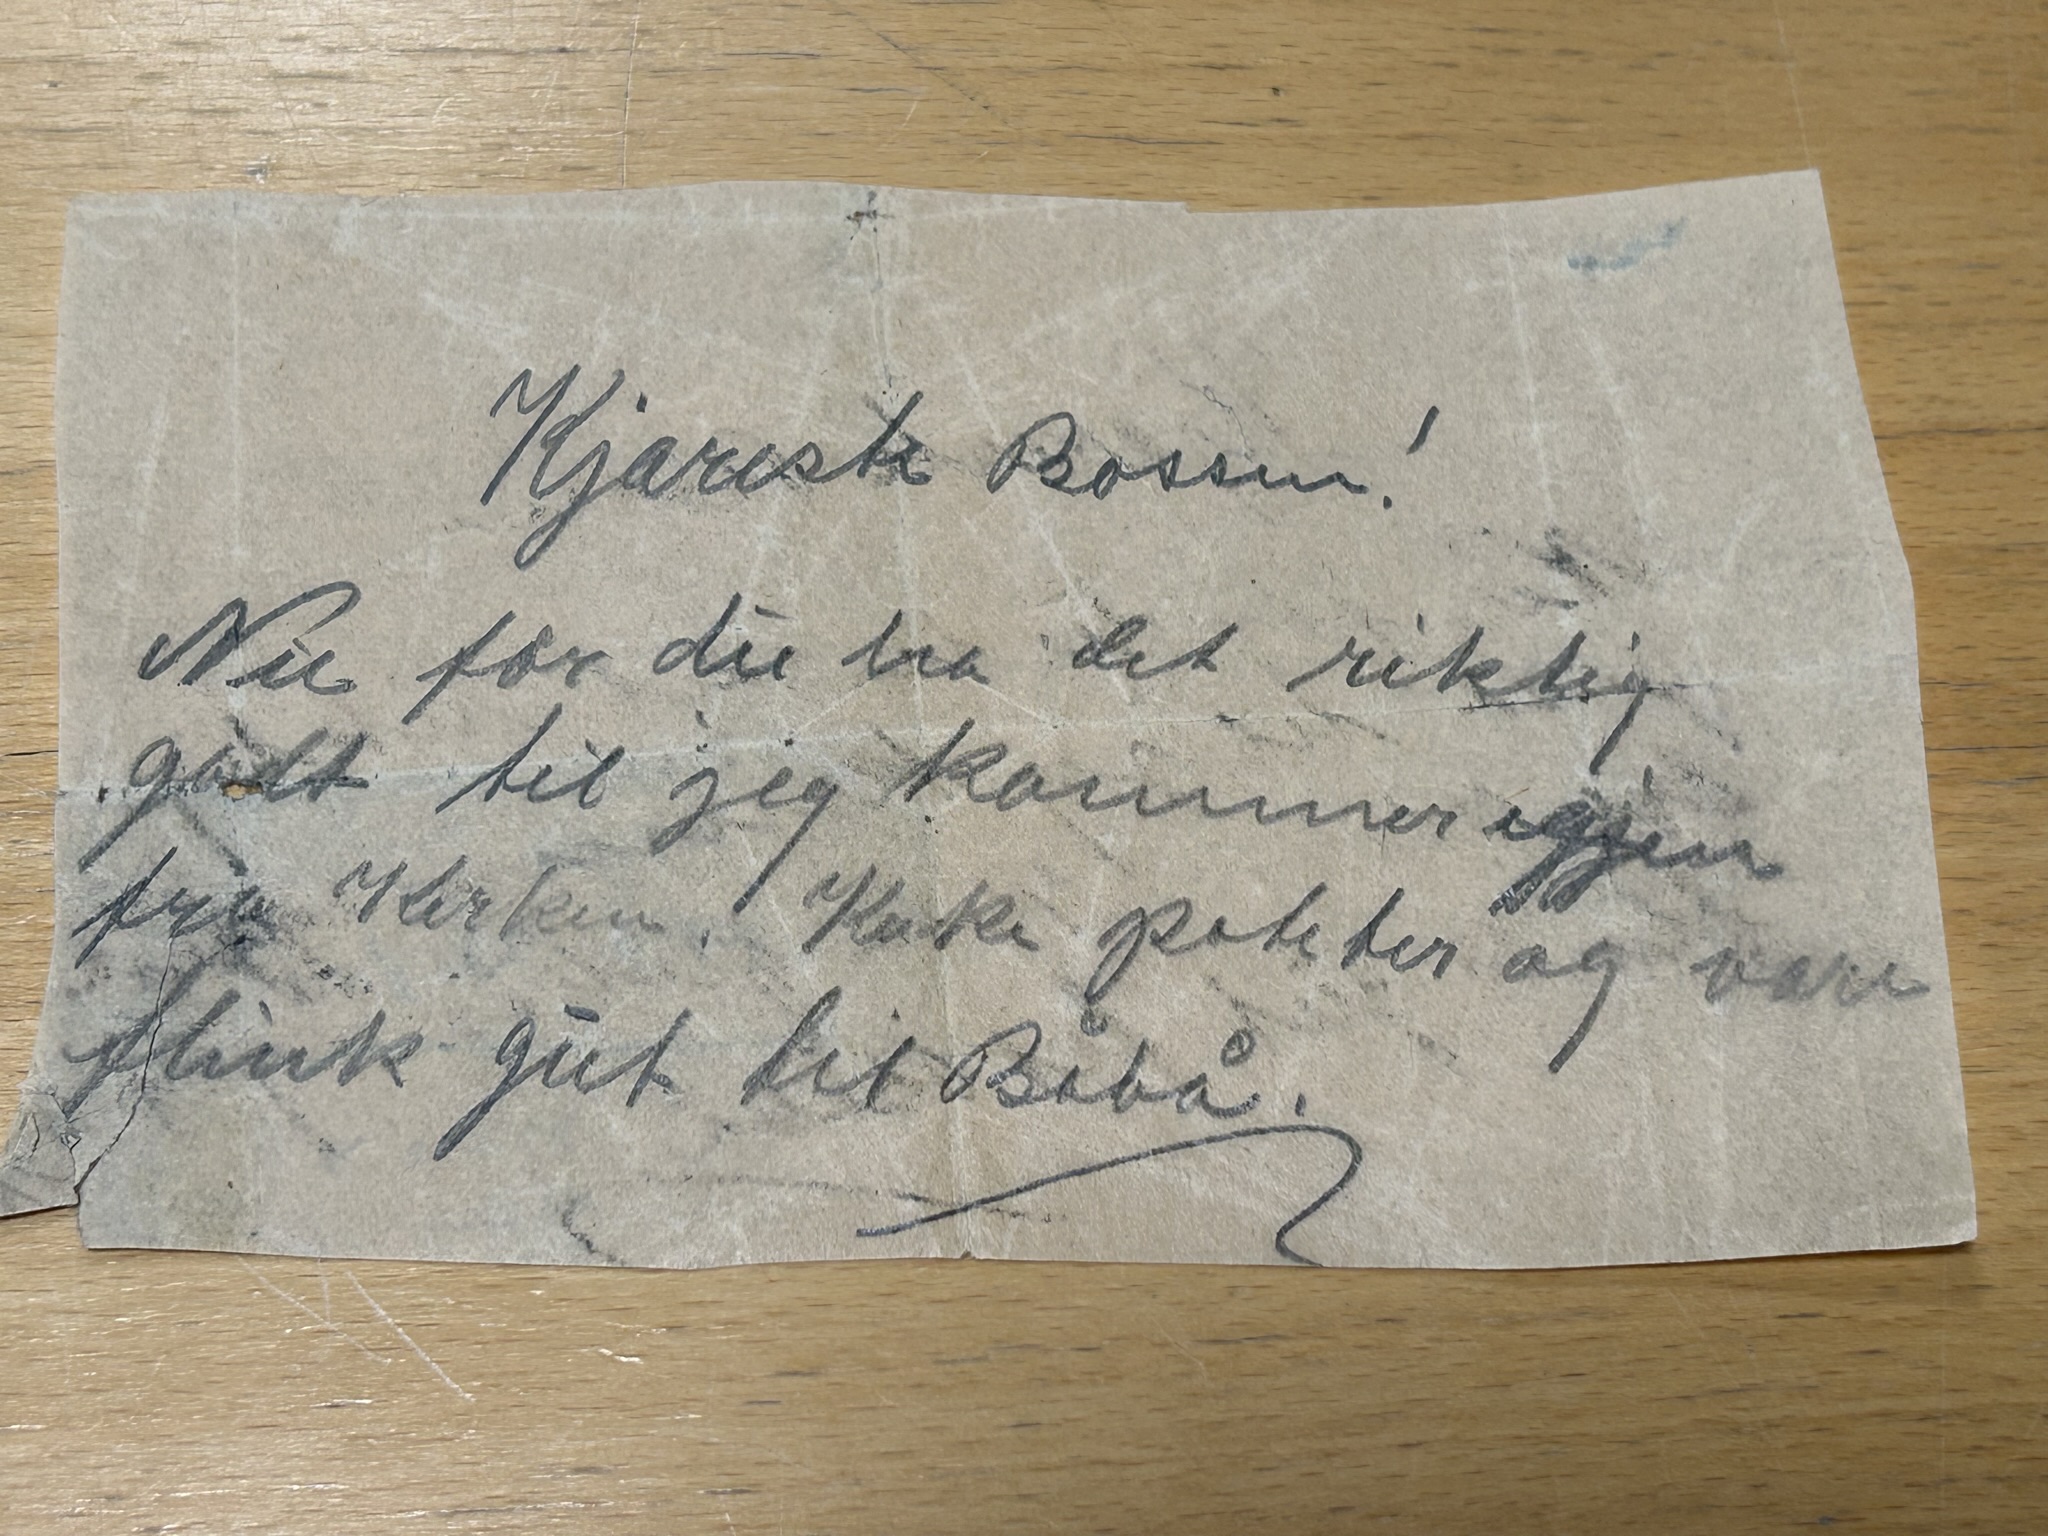 Kjæreste Bossen!
Nu får du ha det riktig
godt til jeg kommer igjen
fra Kirken. Koke poteter og være
flink gut til Båbå.